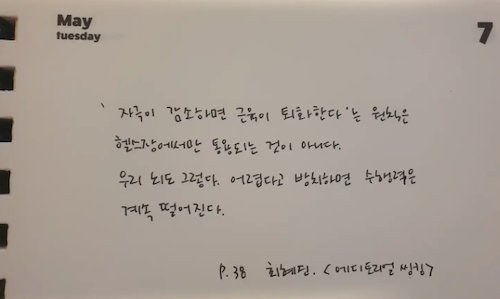 May
tuesday
7
'자극이 감소하면 근육이 퇴화한다'는 원칙은
헬스장에서만 통용되는 것이 아니다.
우리 뇌도 그렇다. 어렵다고 방치하면 수행력은
계속 떨어진다.
P.38 최혜진. <에디토리얼 씽킹>